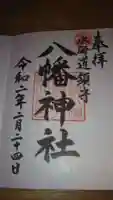 奉拝
八幡神社
令和二年二月二十四日